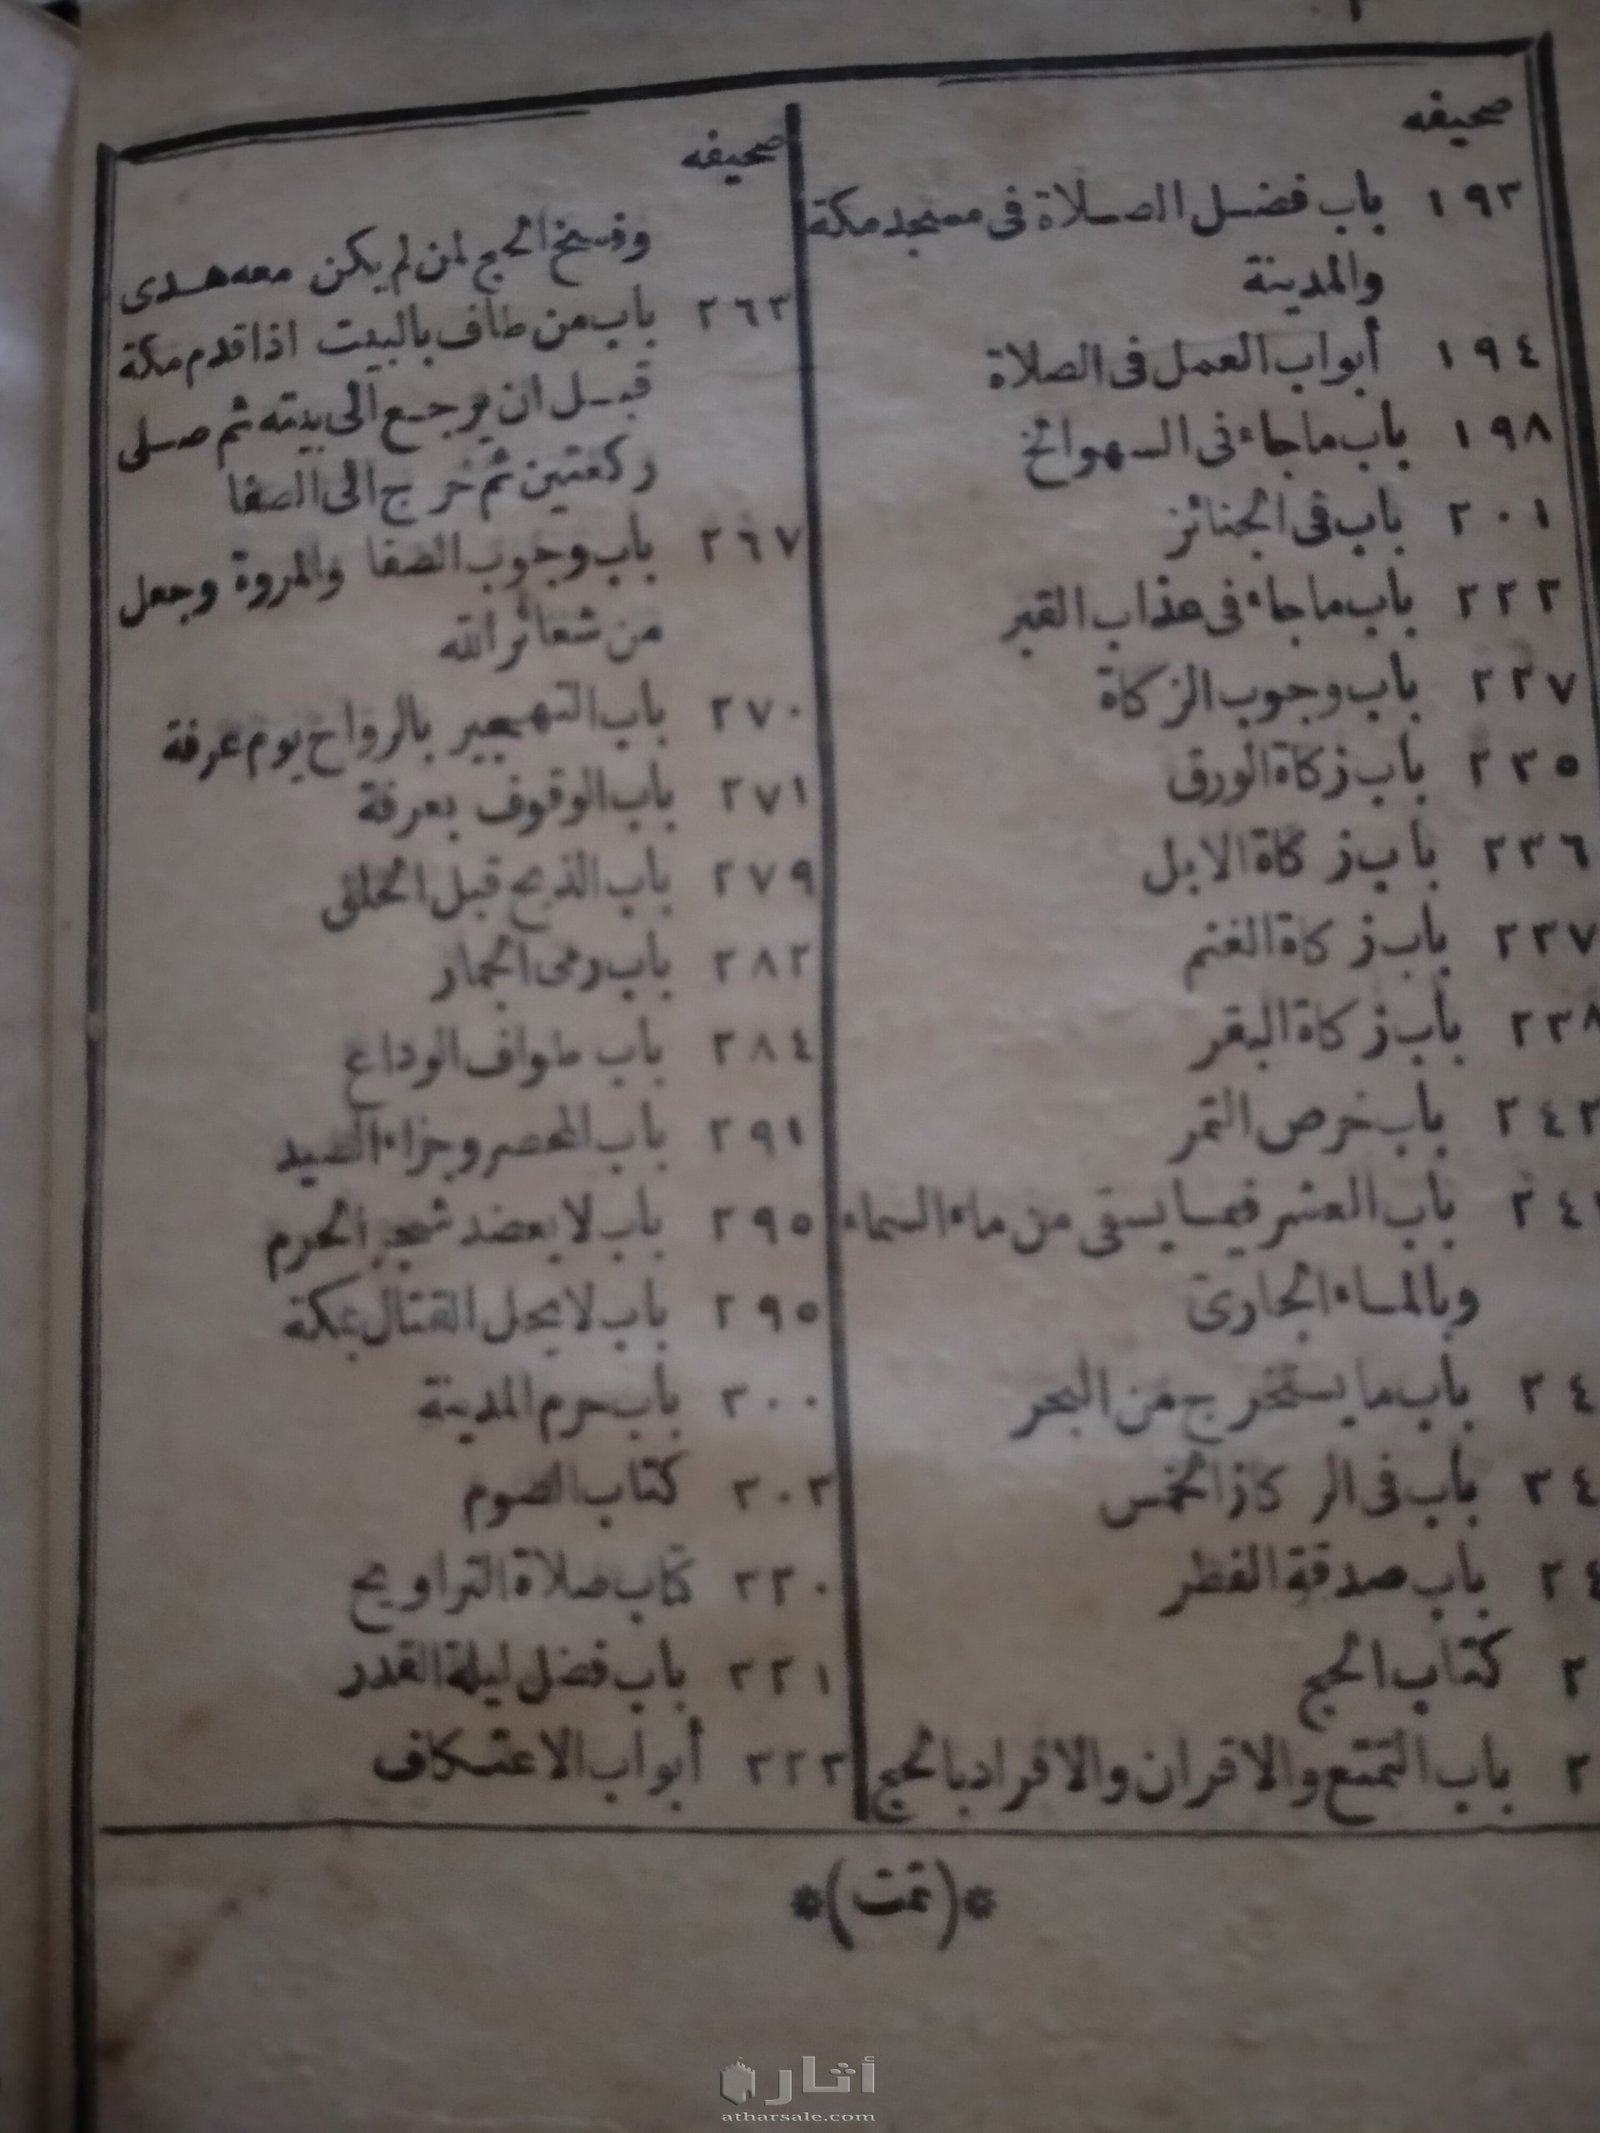 صحيفه
١٩٣ باب فضل الصلاة فى مسجد مكة
والمدينة
١٩٤ أبواب العمل فى الصلاة
١٩٨ باب ما جاء فى السهو الخ
٢٠١ باب فى الجنائز
٢٢٣ باب ما جاء فى عذاب القبر
٢٢٧ باب وجوب الزكاة
٢٣٥ باب زكاة الورق
٢٣٦ باب زكاة الابل
٢٣٧ باب زكاة الغنم
٢٣٨ باب زكاة البقر
٢٤٣ باب خرص التمر
باب العشر فيما يسقى من ماء السماء
وبالماء الجارى
باب ما يستخرج من البحر
باب فى الركاز الخمس
باب صدقة الفطر
كتاب الحج
باب التمتع والاقران والافراد بالحج
صحيفه
وفسخ الحج لمن لم يكن معه هدى
٢٦٣ باب من طاف بالبيت اذا قدم مكة
قبل ان يرجع الى بيته ثم صلى
ركعتين ثم خرج الى الصفا
٢٦٧ باب وجوب الصفا والمروة وجعل
من شعائر الله
٢٧٠ باب التهجير بالرواح يوم عرفة
٢٧١ باب الوقوف بعرفة
٢٧٩ باب الذبح قبل الحلق
٢٨٢ باب رمى الجمار
٢٨٤ باب طواف الوداع
٢٩١ باب المحصر وجزاء الصيد
٢٩٥ باب لا يعضد شجر الحرم
٢٩٥ باب لا يحل القتال بمكة
٣٠٠ باب حرم المدينة
٣٠٣ كتاب الصوم
٣٢٠ كتاب صلاة التراويح
٣٢١ باب فضل ليلة القدر
٣٢٣ أبواب الاعتكاف
*(تمت)*
أثار
atharsale.com